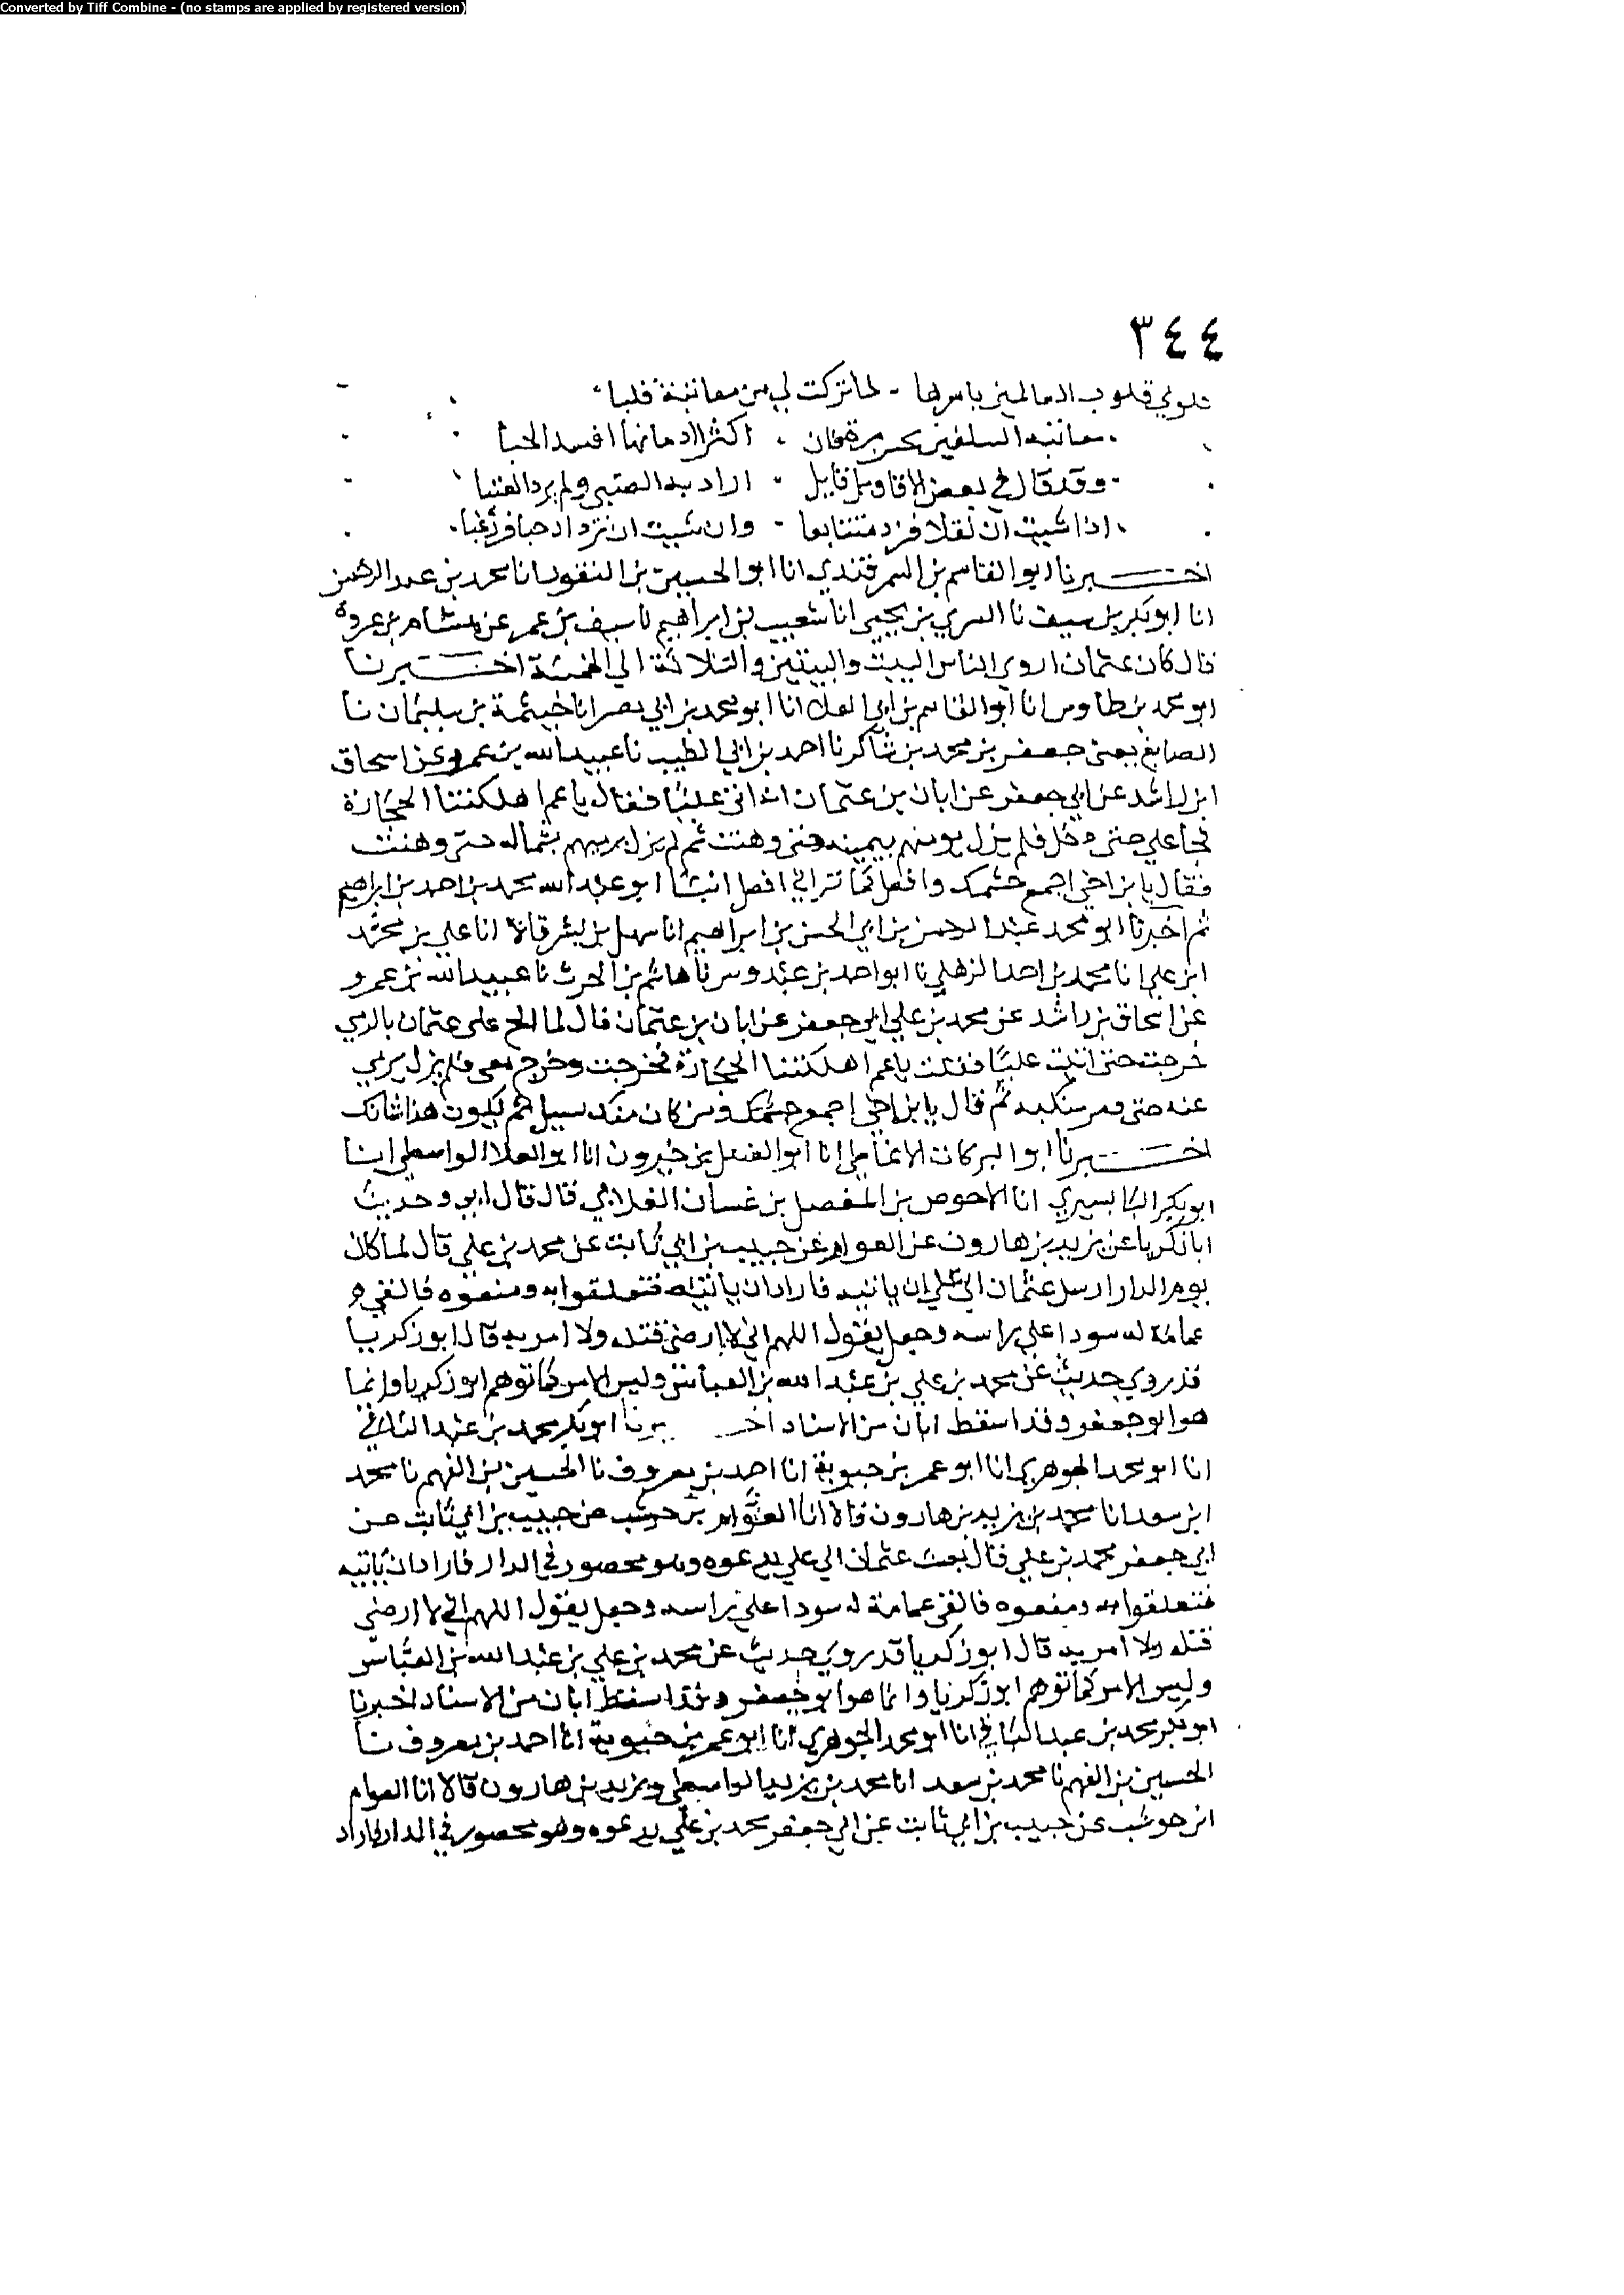 Converted by Tiff Combine - (no stamps are applied by registered version)
٣٤٤
قلوب العالمين باسرها - لما تركت لي من معاتبة قلبا
معاتبه السلفين تحسن مرة فان اكثرا ادمانها افسد الحبا
وقد قال في بعض الاقاويل قايل - اراد به العتبي ولم يرد العتبا
اذا شيت ان تقلا فزد متتابعا - وان شيت ان تزداد حبا فزد غبا
اخبرنا ابو القاسم بن السمرقندي انا ابو الحسين بن النقور انا محمد بن عبد الرحمن
انا ابو بكر بن سيف نا السري بن يحيى انا شعيب بن ابراهيم نا سيف بن عمر عن هشام بن عروة
قال كان عثمان اروي الناس البيت والبيتين والثلاثة الى الخمسة اخبرنا
ابو محمد بن طاوس انا ابو القاسم بن ابي العلا انا ابو محمد بن ابي نصر انا خيثمة بن سليمان نا
الصايغ يعني جعفر بن محمد بن شاكر نا احمد بن ابي الطيب نا عبيد الله بن عمرو عن اسحاق
ابن راشد عن ابي جعفر عن ابان بن عثمان انه اتى عليا فقال يا عم اهلكتنا الحجارة
فجا علي حتى دخل فلم يزل يرميهم بيمينه حتى وهنت ثم لم يزل يرميهم بشماله حتى وهنت
فقال يا بن اخي اجمع حشمك وافعل كما تراني افعل انبانا ابو عبد الله محمد بن احمد بن ابراهيم
ثم اخبرنا ابو محمد عبد الرحمن بن ابي الحسن بن ابراهيم انا سهل بن بشر قالا انا علي بن محمد
ابن علي انا محمد بن احمد الذهلي نا ابو احمد بن عبدوس نا هاشم بن الحرث نا عبيد الله بن عمرو
عن اسحاق بن راشد عن محمد بن علي ابي جعفر عن ابان بن عثمان قال لما الح على عثمان بالرمي
خرجت حتى اتيت عليا فقلت يا عم اهلكتنا الحجارة فخرجت وخرج معي فلم يزل يرمي
عنه حتى ومر منكبه ثم قال يا بن اخي اجمع حشمك ومن كان منك بسبيل ثم ليكون هذا شانك
اخبرنا ابو البركات الانماطي انا ابو الفضل بن خيرون انا ابو العلا الواسطي انا
ابو بكر البابسيري انا الاحوص بن المفضل بن غسان الغلابي قال قال ابي وحديث
ابا زكريا عن يزيد بن هارون عن العوام عن حبيب بن ابي ثابت عن محمد بن علي قال لما كان
يوم الدار ارسل عثمان الى علي ان ياتيه فاراد ان ياتيه فتعلقوا به ومنعوه فالقى
عمامة له سودا على راسه وجعل يقول اللهم اني لا ارضى قتله ولا امر به قال ابو زكريا
قد روي حديث عن محمد بن علي بن عبد الله بن العباس وليس الامر كما توهم ابو زكريا وانما
هو ابو جعفر وقد اسقط ابان من الاسناد اخبرنا ابو بكر محمد بن عبد الباقي
انا ابو محمد الجوهري انا ابو عمر بن حيوية انا احمد بن معروف نا الحسين بن الفهم نا محمد
ابن سعد انا محمد بن يزيد بن هارون قالا انا العوام بن حوشب عن حبيب بن ابي ثابت عن
ابي جعفر محمد بن علي قال بعث عثمان الى علي يدعوه وهو محصور في الدار فاراد ان ياتيه
فتعلقوا به ومنعوه فالقى عمامة له سودا على راسه وجعل يقول اللهم اني لا ارضى
قتله ولا امر به قال ابو زكريا قد روي حديث عن محمد بن علي بن عبد الله بن العباس
وليس الامر كما توهم ابو زكريا وانما هو ابو جعفر وقد اسقط ابان من الاسناد اخبرنا
ابو بكر محمد بن عبد الباقي انا ابو محمد الجوهري انا ابو عمر بن حيوية انا احمد بن معروف نا
الحسين بن الفهم نا محمد بن سعد انا محمد بن يزيد الواسطي ويزيد بن هارون قالا انا العوام
ابن حوشب عن حبيب بن ابي ثابت عن ابي جعفر محمد بن علي يدعوه وهو محصور في الدار فاراد